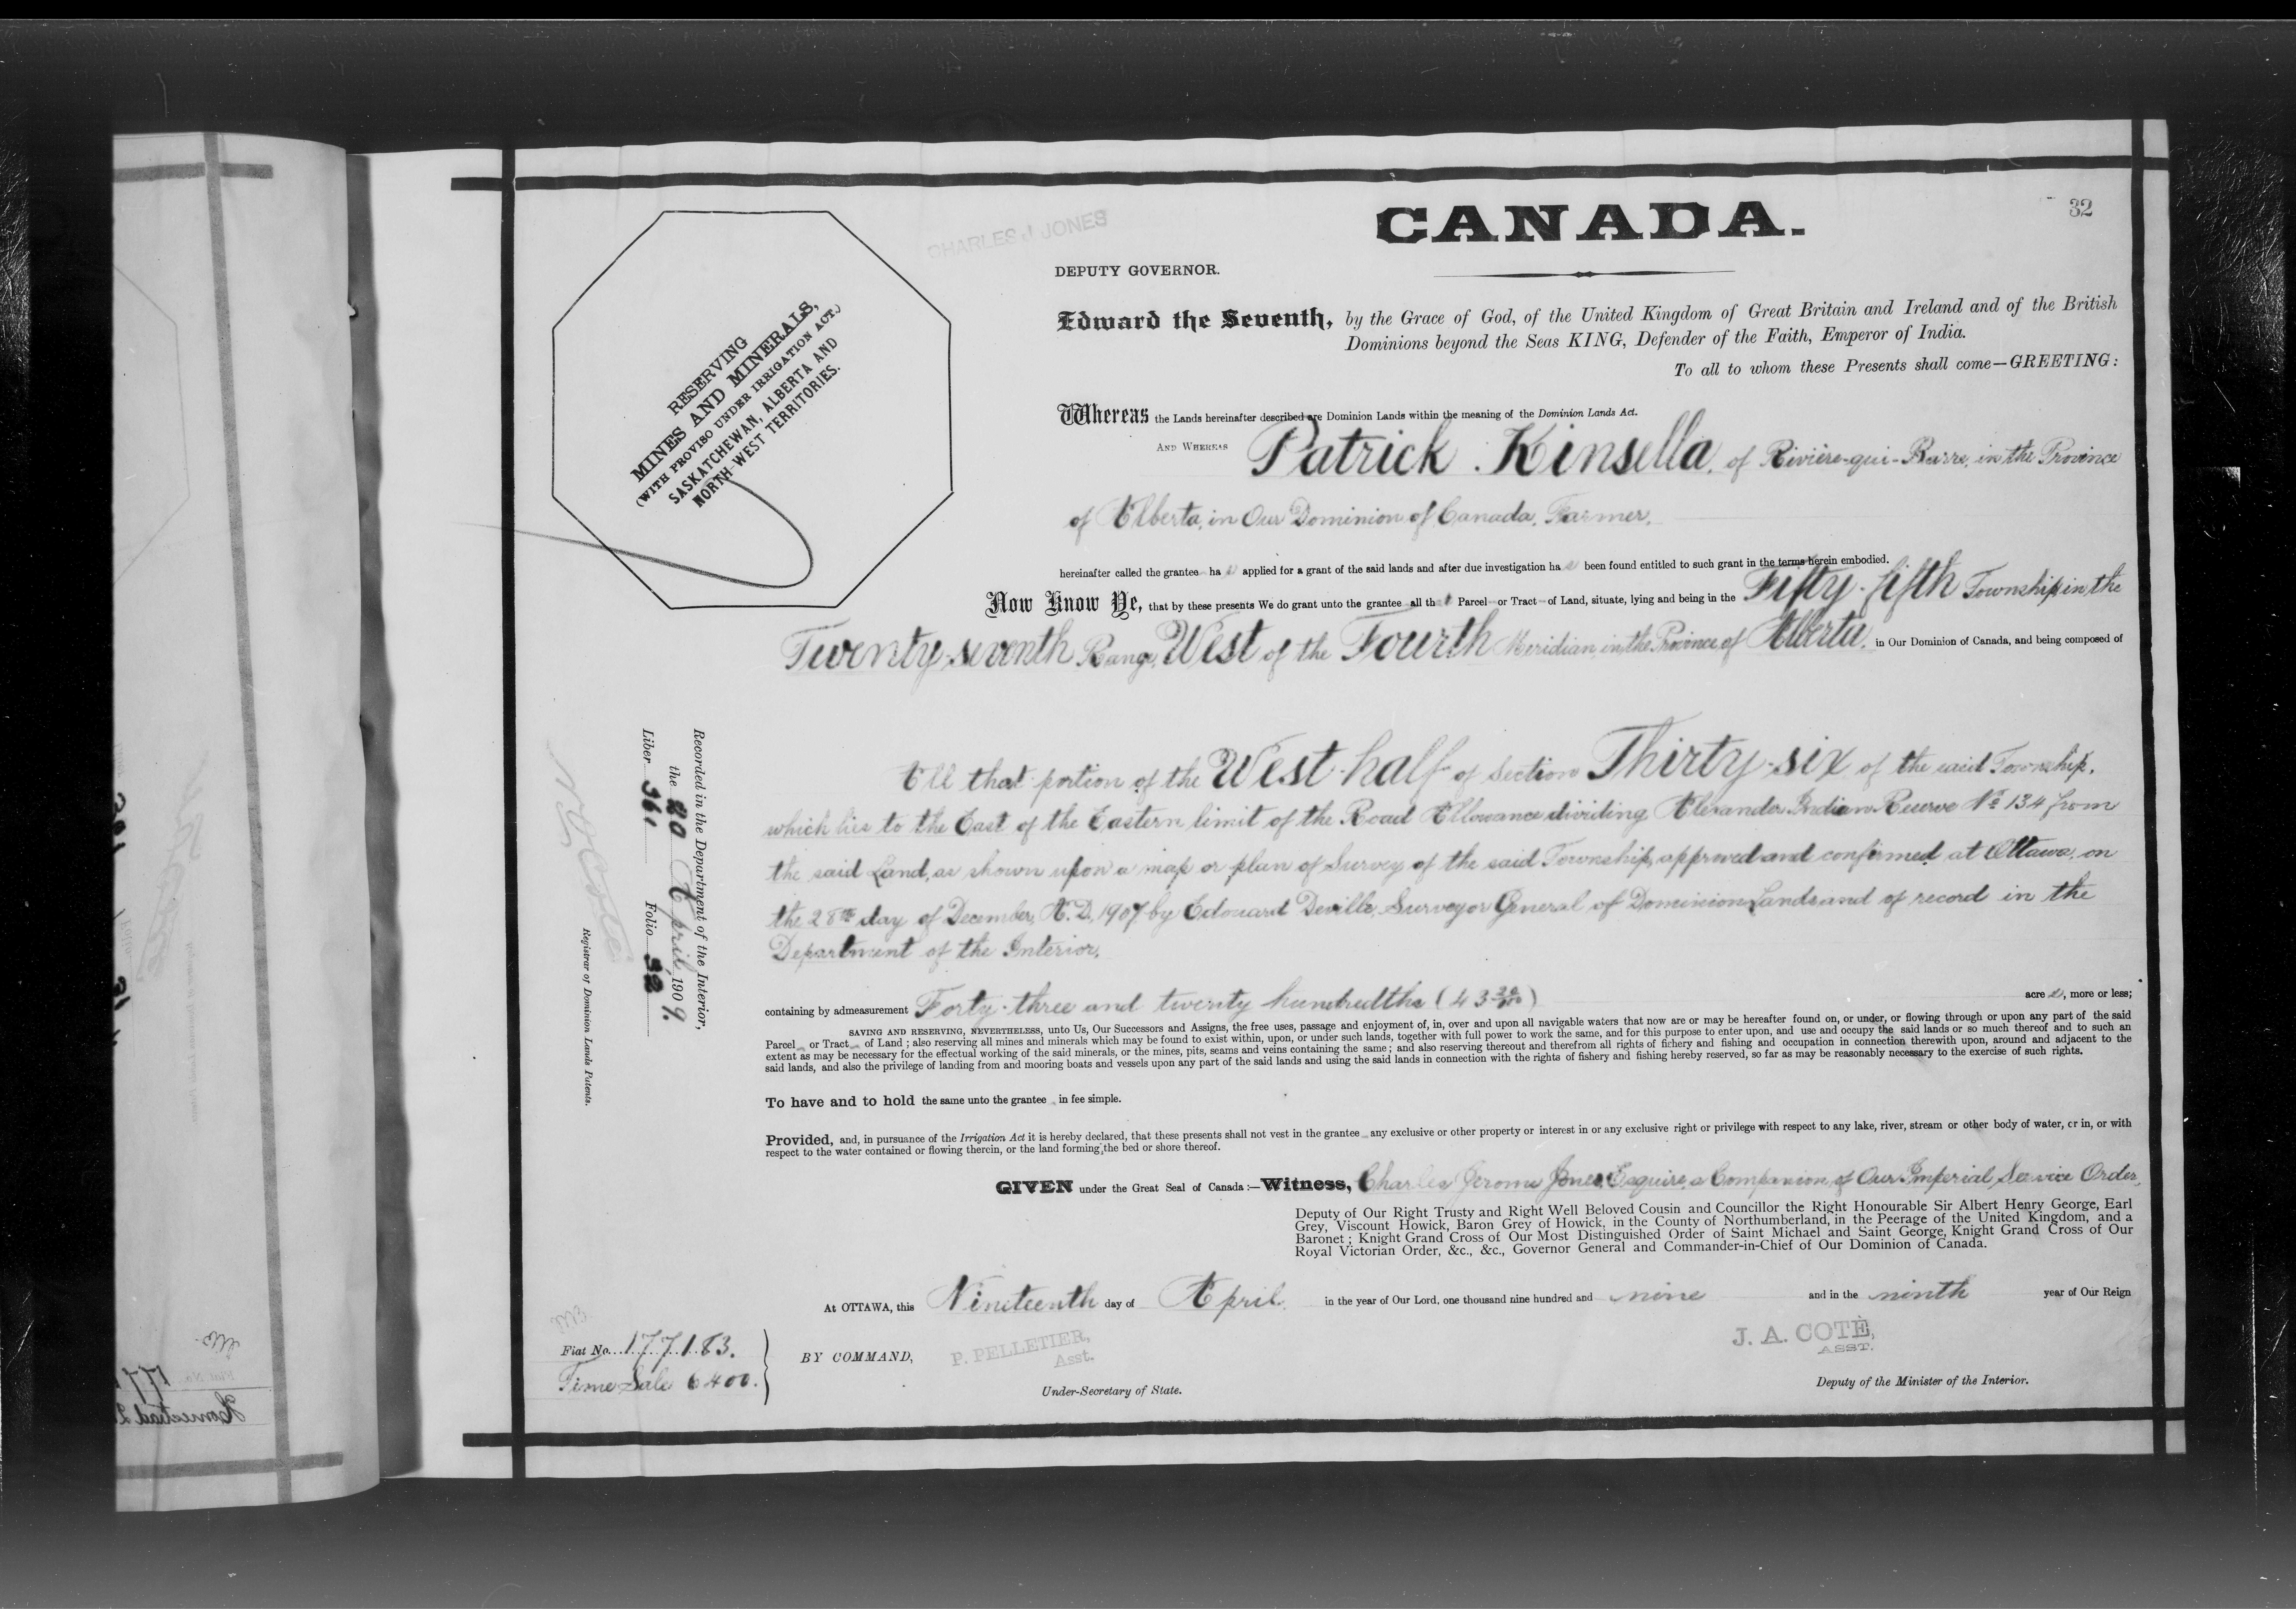 32
CANADA.
CHARLES J JONES
DEPUTY GOVERNOR.
RESERVING
MINES AND MINERALS,
(WITH PROVISO UNDER IRRIGATION ACT.)
SASKATCHEWAN, ALBERTA AND
NORTH-WEST TERRITORIES.
Edward the Seventh, by the Grace of God, of the United Kingdom of Great Britain and Ireland and of the British
Dominions beyond the Seas KING, Defender of the Faith, Emperor of India.
To all to whom these Presents shall come—GREETING:
Whereas the Lands hereinafter described are Dominion Lands within the meaning of the Dominion Lands Act.
AND WHEREAS Patrick Kinsella, of Rivière-qui-Barre, in the Province
of Alberta, in Our Dominion of Canada, Farmer,
hereinafter called the grantee has applied for a grant of the said lands and after due investigation has been found entitled to such grant in the terms herein embodied.
Now Know Ye, that by these presents We do grant unto the grantee all that Parcel or Tract of Land, situate, lying and being in the Fifty-fifth Township, in the
Twenty-seventh Range, West of the Fourth Meridian, in the Province of Alberta, in Our Dominion of Canada, and being composed of
All that portion of the West-half of Section Thirty-six of the said Township,
which lies to the East of the Eastern limit of the Road Allowance dividing Alexander Indian Reserve No. 134 from
the said Land, as shown upon a map or plan of Survey of the said Township, approved and confirmed at Ottawa, on
the 28th day of December, A.D. 1907 by Edouard Deville, Surveyor General of Dominion Lands and of record in the
Department of the Interior.
containing by admeasurement Forty-three and twenty hundredths (43 20/100) acres, more or less;
SAVING AND RESERVING, NEVERTHELESS, unto Us, Our Successors and Assigns, the free uses, passage and enjoyment of, in, over and upon all navigable waters that now are or may be hereafter found on, or under, or flowing through or upon any part of the said
Parcel or Tract of Land; also reserving all mines and minerals which may be found to exist within, upon, or under such lands, together with full power to work the same, and for this purpose to enter upon, and use and occupy the said lands or so much thereof and to such an
extent as may be necessary for the effectual working of the said minerals, or the mines, pits, seams and veins containing the same; and also reserving thereout and therefrom all rights of fichery and fishing and occupation in connection therewith upon, around and adjacent to the
said lands, and also the privilege of landing from and mooring boats and vessels upon any part of the said lands and using the said lands in connection with the rights of fishery and fishing hereby reserved, so far as may be reasonably necessary to the exercise of such rights.
To have and to hold the same unto the grantee in fee simple.
Provided, and, in pursuance of the Irrigation Act it is hereby declared, that these presents shall not vest in the grantee any exclusive or other property or interest in or any exclusive right or privilege with respect to any lake, river, stream or other body of water, or in, or with
respect to the water contained or flowing therein, or the land forming the bed or shore thereof.
GIVEN under the Great Seal of Canada:—Witness, Charles Jerome Jones, Esquire, a Companion of Our Imperial Service Order,
Deputy of Our Right Trusty and Right Well Beloved Cousin and Councillor the Right Honourable Sir Albert Henry George, Earl
Grey, Viscount Howick, Baron Grey of Howick, in the County of Northumberland, in the Peerage of the United Kingdom, and a
Baronet; Knight Grand Cross of Our Most Distinguished Order of Saint Michael and Saint George, Knight Grand Cross of Our
Royal Victorian Order, &c., &c., Governor General and Commander-in-Chief of Our Dominion of Canada.
At OTTAWA, this Nineteenth day of April in the year of Our Lord, one thousand nine hundred and nine and in the ninth year of Our Reign
BY COMMAND,
P. PELLETIER,
Asst.
Under-Secretary of State.
J. A. COTÉ,
ASST.
Deputy of the Minister of the Interior.
Fiat No. 177183.
Time Sale 6400.
Recorded in the Department of the Interior,
the 20 April, 1909.
Liber 361 Folio 32
N O Coté
Registrar of Dominion Lands Patents.